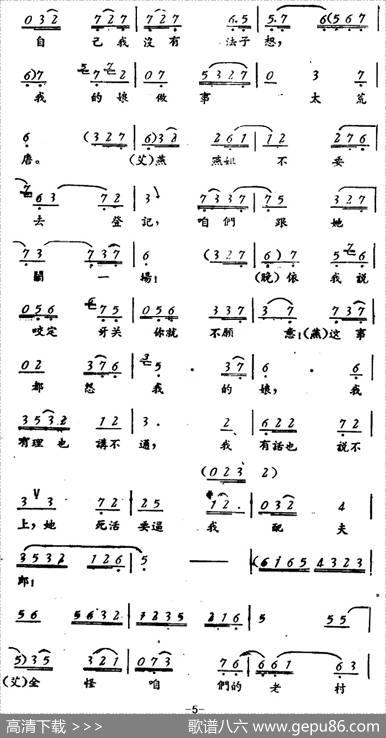 0 3 2 | 7 2 7 7 2 7 6. 5 | 5. 7 6 (5 6 7
自 己 我 沒 有 法子 想,
6) 7 7 2 | 0 7 5 3 2 7 | 0 3 7
我 的 娘 做 事 太 荒
6 (3 2 7 | 6) 3 3 2 6 1 | 1 2 2 7 6
唐。 (艾)燕 燕姐 不 要
6 3 7 2 | 3 | 7 3 3 7 7 5 3 2 7
去 登 記, 咱 們 跟 她
7 3 3 7 | 6 (3 2 7 | 6) 7 5 6
鬧 一 場! (晚)依 我 說
0 5 6 7 5 | 0 5 6 3 3 7 | 3 7 7 3 7
咬定 牙关 你就 不願 意!(燕)这 事
0 2 3 7 6 | 5 . 3 7 | 6 . 6
都 怨 我 的 娘, 我
3 5 3 2 1 2 | 3 . 2 | 6 2 2 7 2
有理 也 講不 通, 我 有話也 說不
(0 2 3 2)
3 3 7 2 | 2 5 1 2. | 0 3 2 4
上,她 死活 要逼 我 配 夫
3 5 3 2 1 2 6 | 5 — | (6 1 6 5 4 3 2 3
郎!
5 6 5 6 3 2 | 1 2 3 5 2 1 6 | 5 5 5
5) 3 5 3 2 1 | 0 7 3 7 6 | 6 6 1 6 3
(艾)全 怪 咱 們的 老 村
—5—
高清下载 >>> 歌谱八六 www.gepu86.com